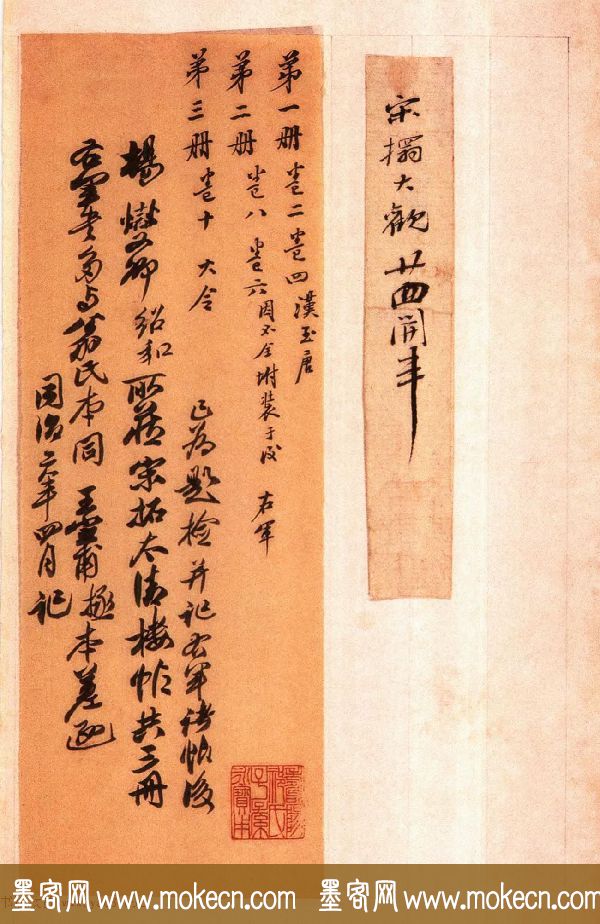 宋搨大觀廿四開半
第一册 卷二卷四 漢至唐
第二册 卷八 卷六因不全坿裝于後 右軍
第三册 卷十 大令
已為題檢并記右軍諸帖後
楊燮卿紹和所藏宋拓太清樓帖共三冊
右軍書多與翁氏本同 王 甫極本差遜
同治六年四月記
墨客网 www.mokecn.com 墨客网 www.mokecn.com